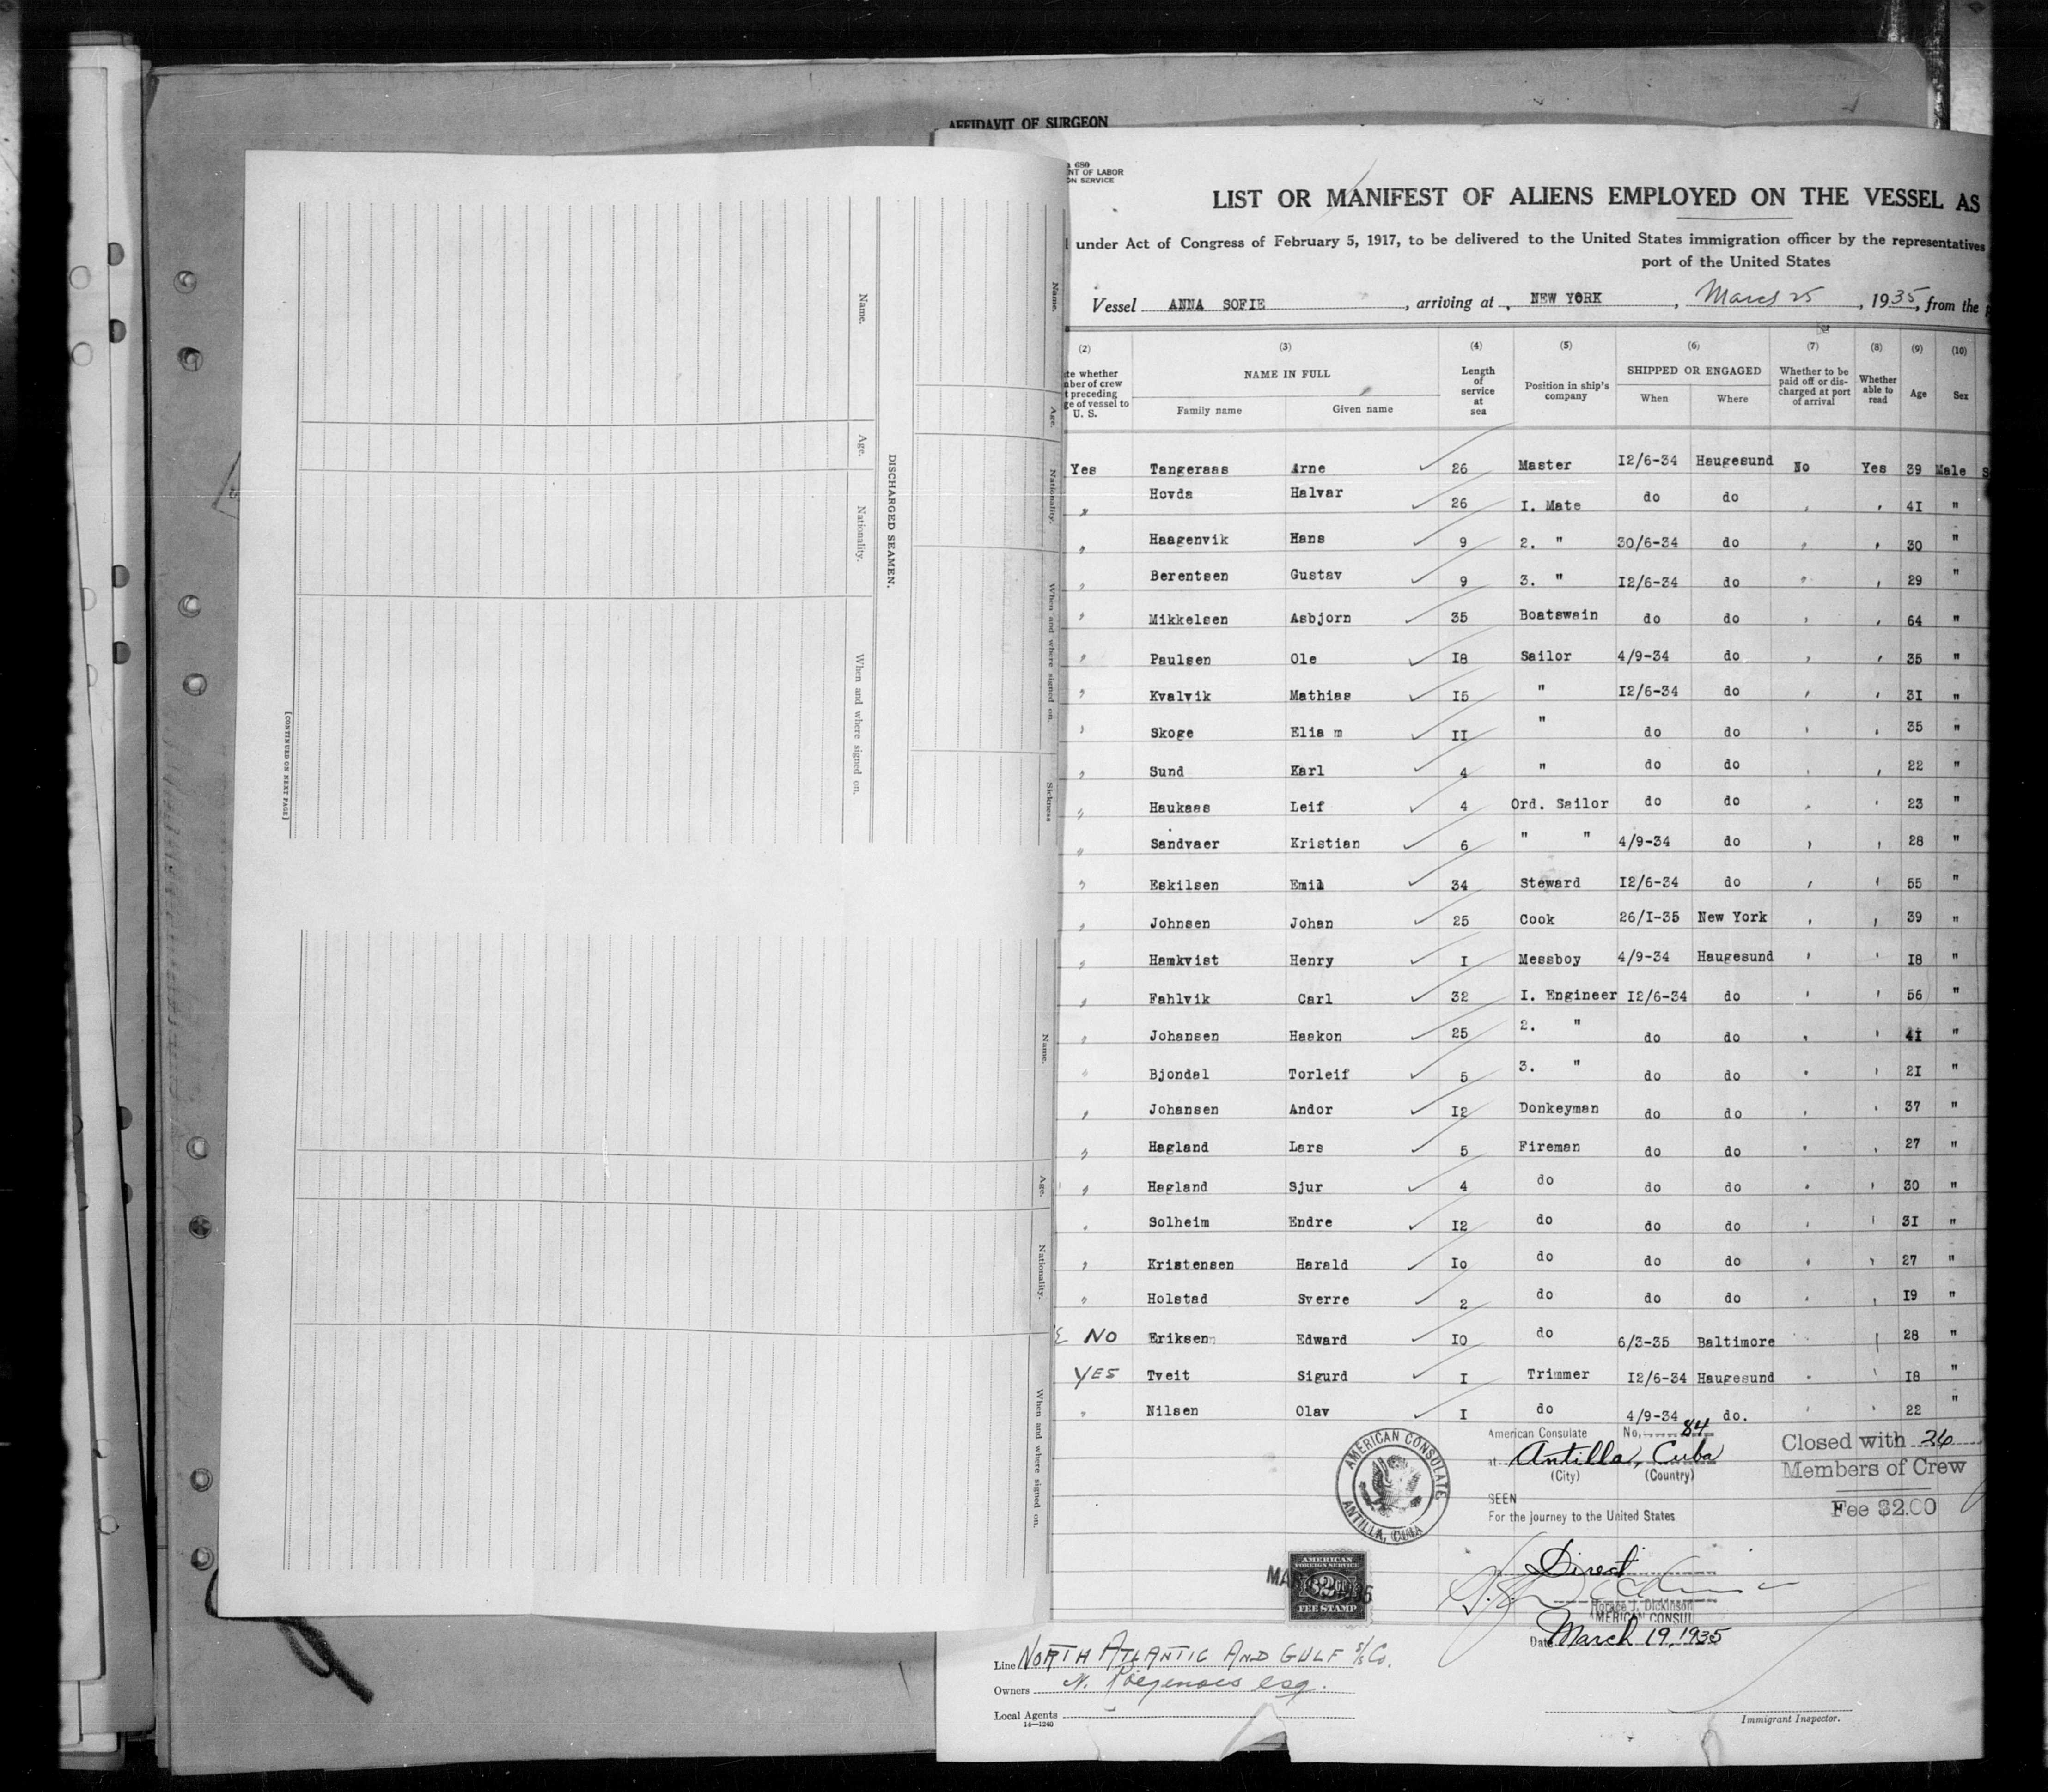 AFFIDAVIT OF SURGEON
680
NT OF LABOR
ON SERVICE
LIST OR MANIFEST OF ALIENS EMPLOYED ON THE VESSEL AS
under Act of Congress of February 5, 1917, to be delivered to the United States immigration officer by the representatives
port of the United States
Vessel ANNA SOFIE, arriving at, NEW YORK, March 25, 1935, from the
(2) (3) (4) (5) (6) (7) (8) (9) (10)
te whether
ber of crew
t preceding
ge of vessel to
U. S.
NAME IN FULL
Family name Given name
Length
of
service
at
sea
Position in ship's
company
SHIPPED OR ENGAGED
When Where
Whether to be
paid off or dis-
charged at port
of arrival
Whether
able to
read
Age
Sex
Yes Tangeraas Arne 26 Master 12/6-34 Haugesund No Yes 39 Male
" Hovda Halvar 26 I. Mate do do " " 41 "
" Haagenvik Hans 9 2. " 30/6-34 do " " 30 "
" Berentsen Gustav 9 3. " 12/6-34 do " " 29 "
" Mikkelsen Asbjorn 35 Boatswain do do " " 64 "
" Paulsen Ole 18 Sailor 4/9-34 do " " 35 "
" Kvalvik Mathias 15 " 12/6-34 do " " 31 "
" Skoge Eliam 11 " do do " " 35 "
" Sund Karl 4 " do do " " 22 "
" Haukaas Leif 4 Ord. Sailor do do " " 23 "
" Sandvaer Kristian 6 " " 4/9-34 do " " 28 "
" Eskilsen Emil 34 Steward 12/6-34 do " " 55 "
" Johnsen Johan 25 Cook 26/I-35 New York " " 39 "
" Hamkvist Henry I Messboy 4/9-34 Haugesund " " 18 "
" Fahlvik Carl 32 I. Engineer 12/6-34 do " " 56 "
" Johansen Haakon 25 2. " do do " " 41 "
" Bjondal Torleif 5 3. " do do " " 21 "
" Johansen Andor 12 Donkeyman do do " " 37 "
" Hagland Lars 5 Fireman do do " " 27 "
" Hagland Sjur 4 do do do " " 30 "
" Solheim Endre 12 do do do " " 31 "
" Kristensen Harald Io do do do " " 27 "
" Holstad Sverre 2 do do do " " 19 "
NO Eriksen Edward 10 do 6/3-35 Baltimore " " 28 "
YES Tveit Sigurd I Trimmer 12/6-34 Haugesund " " 18 "
" Nilsen Olav I do 4/9-34 do. " " 22 "
AMERICAN CONSULATE
ANTILLA, CUBA
American Consulate No. 84
at Antilla, Cuba
(City) (Country)
SEEN
For the journey to the United States
Direct
Horace J. Dickinson
AMERICAN CONSUL
Date March 19, 1935
Closed with 26
Members of Crew
Fee $2.00
AMERICAN
FOREIGN SERVICE
FEE STAMP
Line NORTH ATLANTIC AND GULF S/S Co.
Owners
Local Agents
14—1240
Immigrant Inspector.
Name.
Age.
Nationality.
When and where signed on.
DISCHARGED SEAMEN.
[CONTINUED ON NEXT PAGE]
Name.
Age.
Nationality.
When and where signed on.
Sickness
Name.
Age.
Nationality.
When and where signed on.